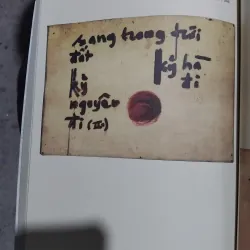 hang trong trời
đất
kỷ hà
đi
kỷ
nguyên
đi (III)